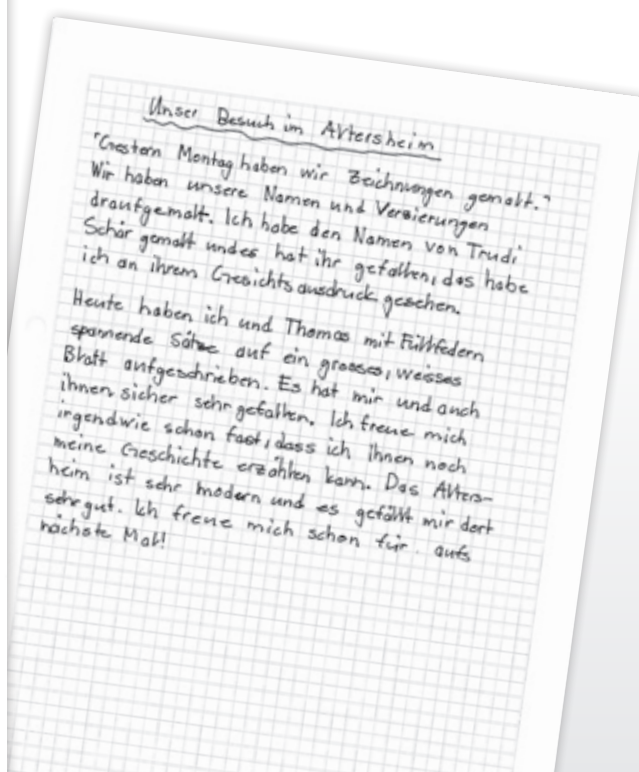 Unser Besuch im Altersheim
"Gestern Montag haben wir Zeichnungen gemalt."
Wir haben unsere Namen und Verzierungen
draufgemalt. Ich habe den Namen von Trudi
Schär gemalt und es hat ihr gefallen, das habe
ich an ihrem Gesichtsausdruck gesehen.
Heute haben ich und Thomas mit Füllfedern
spannende Sätze auf ein grosses, weisses
Blatt aufgeschrieben. Es hat mir und auch
ihnen sicher sehr gefallen. Ich freue mich
irgendwie schon fast, dass ich ihnen noch
meine Geschichte erzählen kann. Das Alters-
heim ist sehr modern und es gefällt mir dort
sehr gut. Ich freue mich schon für aufs
nächste Mal!